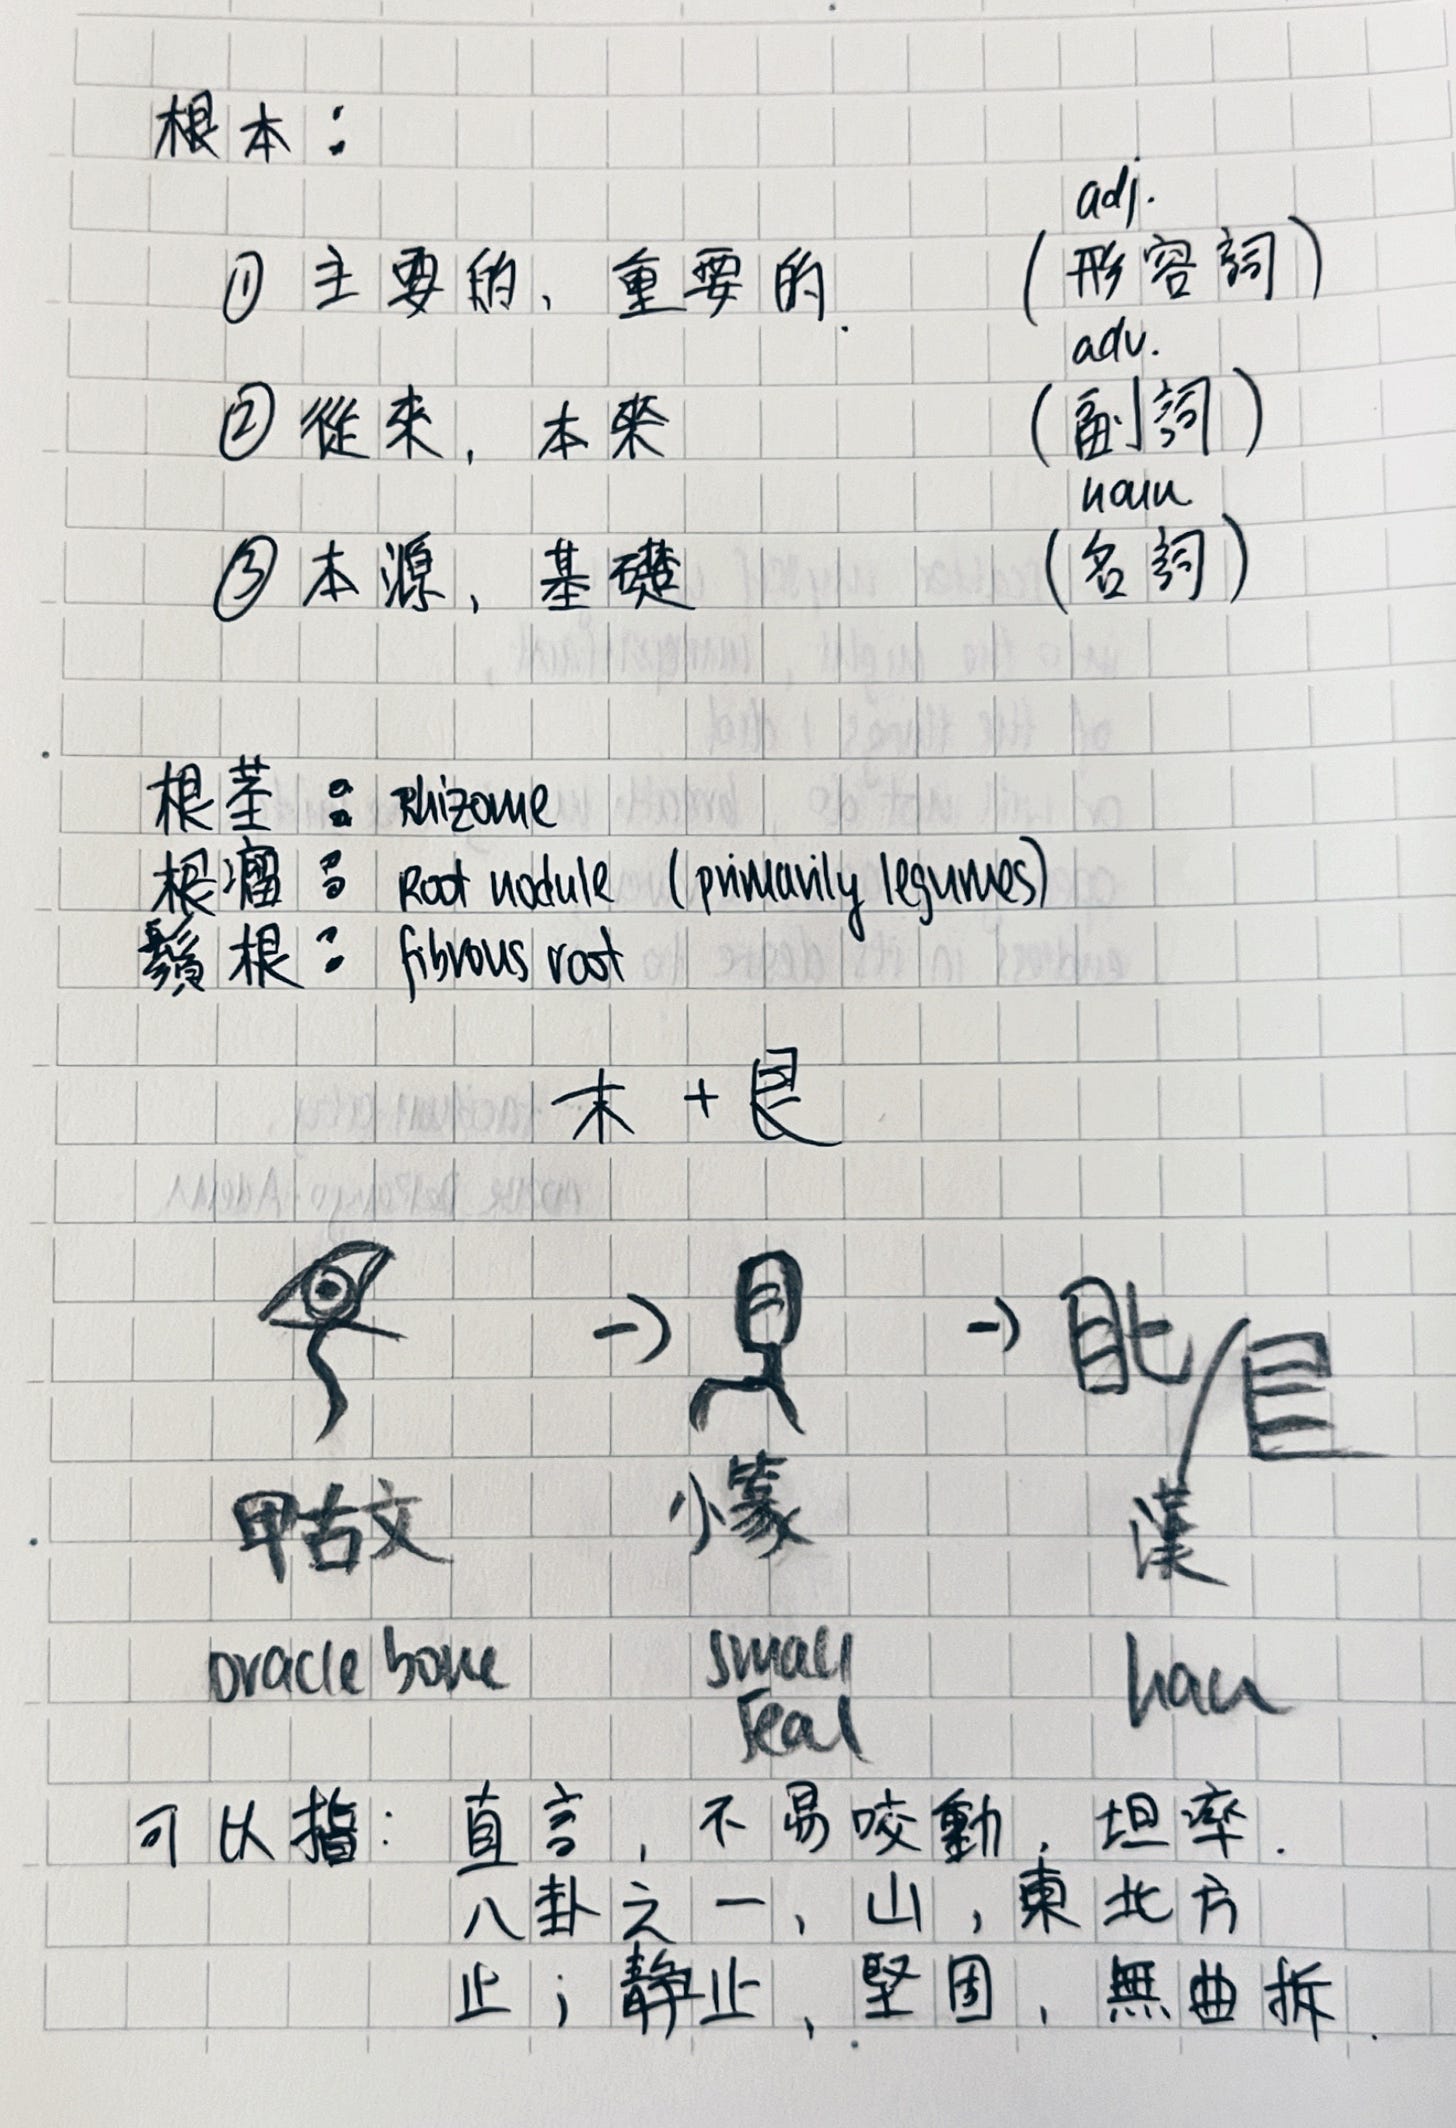 根本：
adj.
① 主要的、重要的. (形容詞)
adv.
② 從來, 本來 (副詞)
noun
③ 本源, 基礎 (名詞)
根莖： Rhizome
根瘤： Root nodule (primarily legumes)
鬚根： fibrous root
木 + 艮
→ → 目匕/艮
甲古文 小篆 漢
oracle bone small seal han
可以指: 直言, 不易咬動, 坦率.
八卦之一, 山, 東北方
止; 靜止, 堅固, 無曲拆.